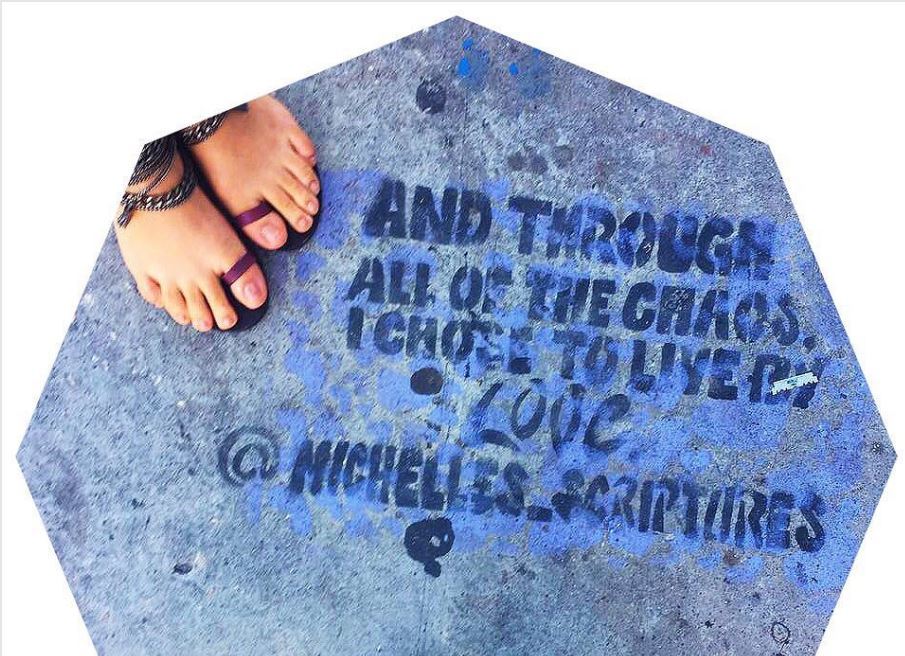 AND THROUGH
ALL OF THE CHAOS,
I CHOSE TO LIVE BY
LOVE
@MICHELLES_SCRIPTURES